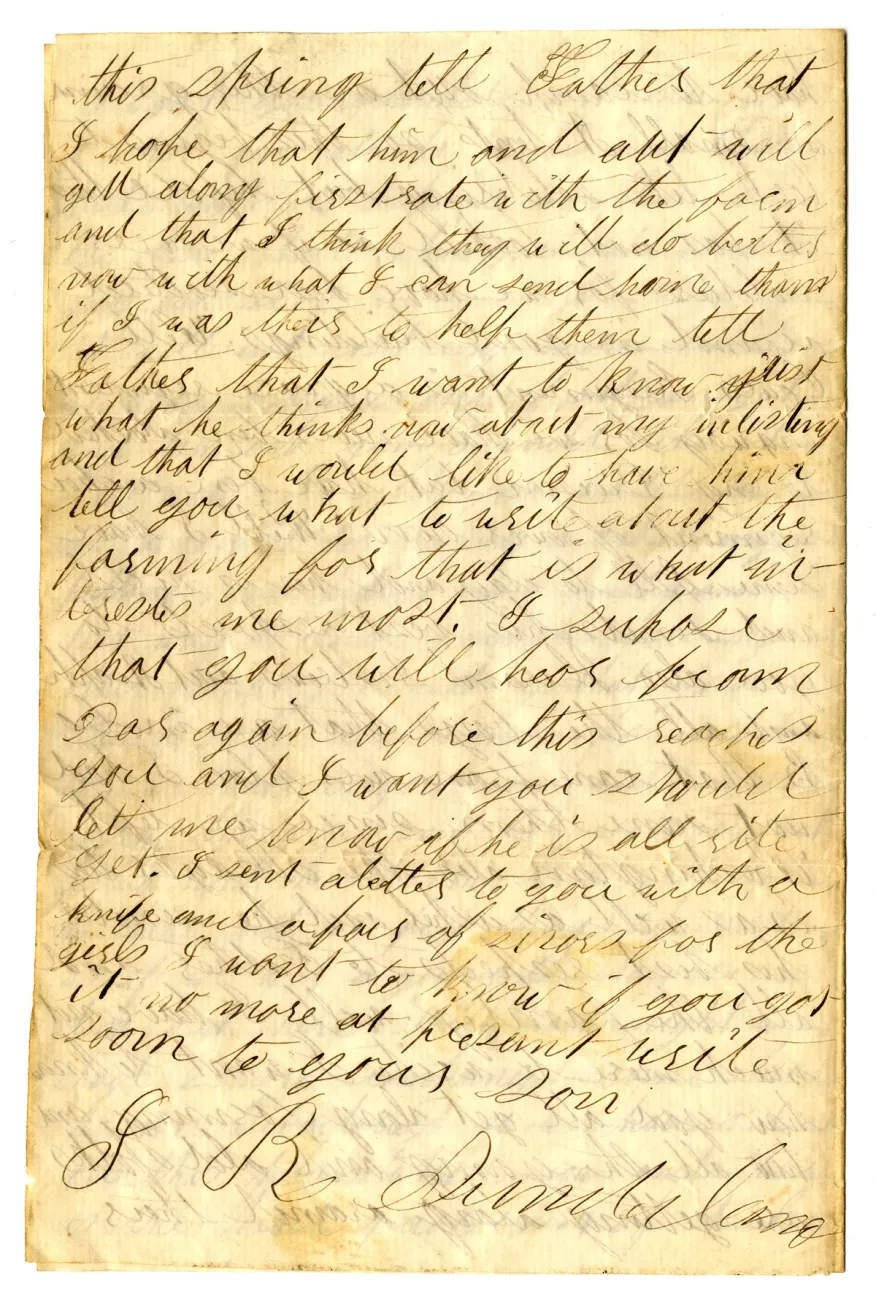 this spring tell Father that
I hope that him and abt will
gett along first rate with the farm
and that I think they will do better
now with what I can send home than
if I was their to help them tell
Father that I want to know just
what he thinks now about my inlisting
and that I would like to have him
tell you what to write about the
farming for that is what in-
trests me most. I supose
that you will hear from
Dar again before this reaches
you and I want you should
let me know if he is all rite
yet. I sent a letter to you with a
knife and a pair of sisors for the
girls I want to know if you got
it no more at presant write
soon to your son
I R Sunderland